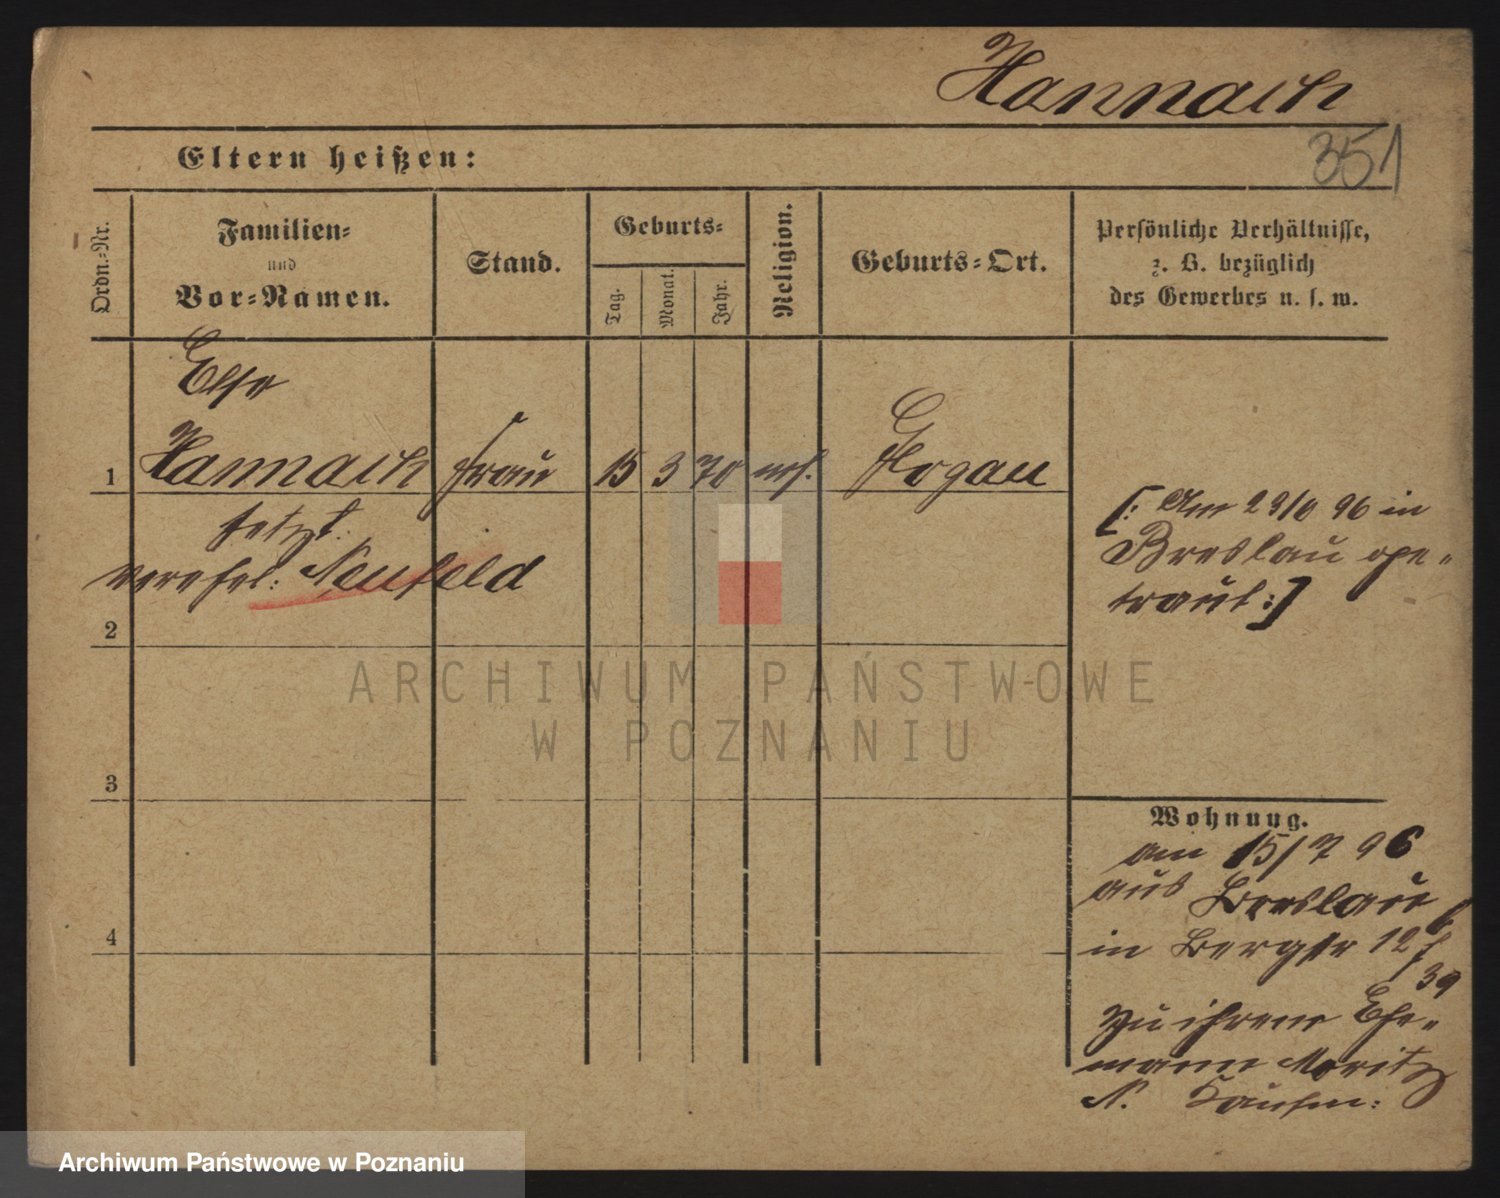 Hannach
351
Eltern heißen:
Ordn.-Nr.
Familien-
und
Vor-Namen.
Stand.
Geburts-
Tag.
Monat.
Jahr.
Religion.
Geburts-Ort.
Persönliche Verhältnisse,
z. B. bezüglich
des Gewerbes u. s. w.
Else
1 Hannach Frau 15 3 70 mos. Glogau
jetzt
verehel: Neufeld
[: Am 23/6 96 in
Breslau ge-
traut :]
2
3
4
Wohnung.
am 15/7 96
aus Breslau
in Bergstr 12
39
zu ihrem Ehe-
mann Moritz
N. Kaufm:
ARCHIWUM PAŃSTWOWE
W POZNANIU
Archiwum Państwowe w Poznaniu